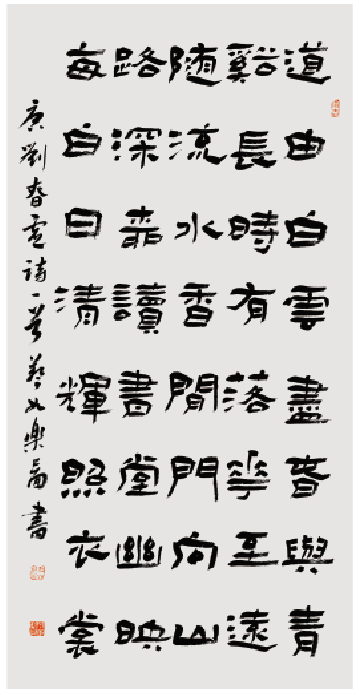 道由白雲盡春與青
谿長時有落花至遠
隨流水香閒門向山
路深柳讀書堂幽映
每白日清輝照衣裳
唐劉眘虛詩一首 樂 書